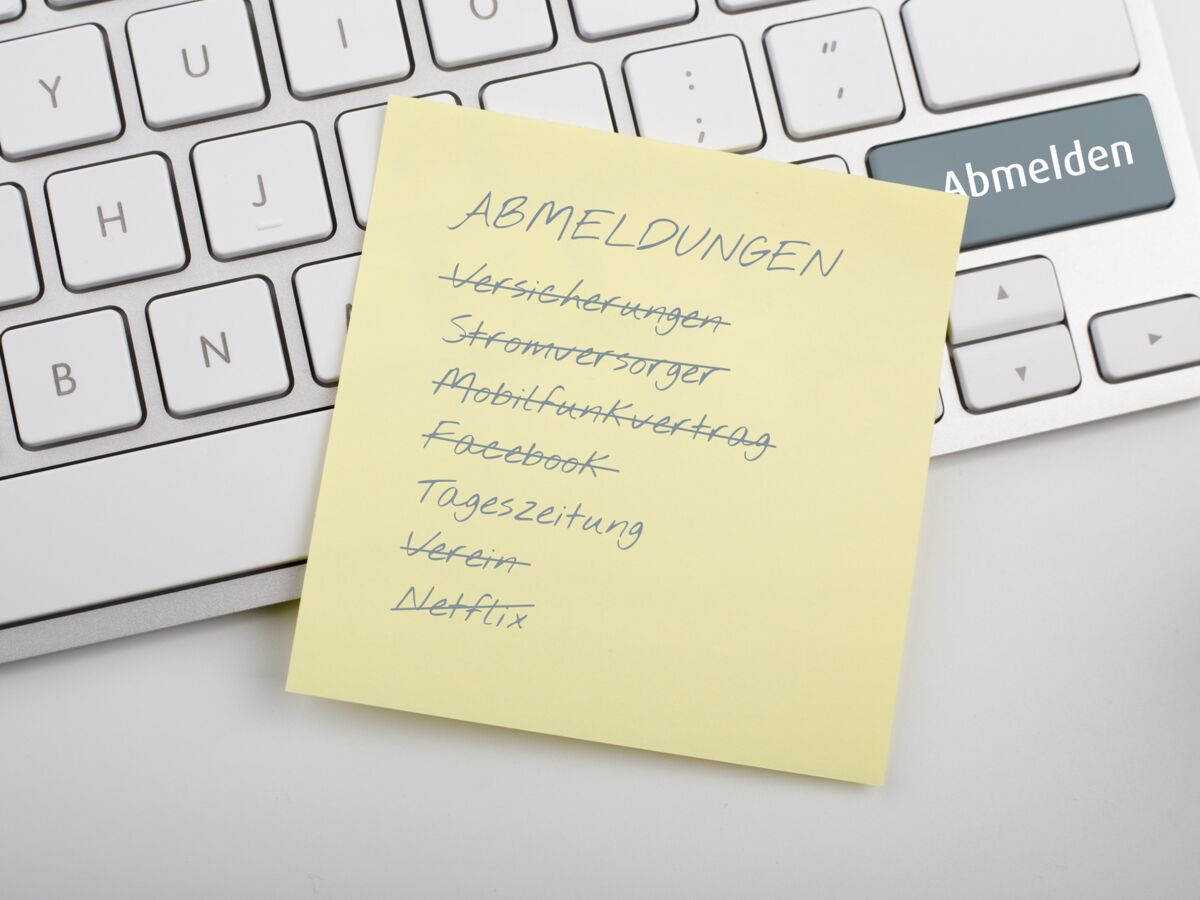 Y U I O
" '
: ;
Abmelden
H J
B N
ABMELDUNGEN
Versicherungen
Stromversorger
Mobilfunkvertrag
Facebook
Tageszeitung
Verein
Netflix